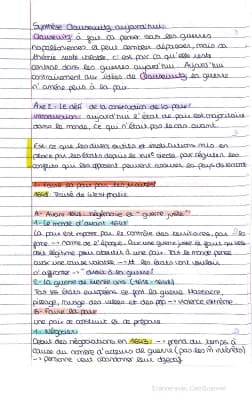 Synthèse Clausewitz aujourd'hui:
Clausewitz a fait ça penser sur les guerres
napoléoniennes et peut sembler dépassé, mais sa
théorie reste, c'est par ça qu'elle reste
centrale dans les guerres aujourd'hui. Aujourd'hui
contrairement aux idées de Clausewitz la guerre
n'amène plus à la paix.
Axe 2 - Le défi de la construction de la paix
Introduction: aujourd'hui l'état de paix est majoritaire
dans le monde, ce qui n'était pas le cas avant.
Est-ce que les divers outils et institutions mis en
place par les états depuis le XVIIe siècle par réguler les
conflits qui les opposent peuvent assurer la paix du monde
I- Faire la paix par les traités
1648: Traité de Westphalie
A- Avant 1648: hégémonie et "guerre juste"
1- Le monde d'avant 1648
La paix est imposée par le contrôle des territoires, par la
force → norme de l'époque. Par une guerre juste il faut qu'elle
soit légitime pour aboutir à une paix. Tout le monde pense
avoir une cause valable → les états vont vouloir
s'affronter → "droit à la guerre"
2- La guerre de trente ans (1618-1648)
Tous les états européens se font la guerre. Massacre,
pillage, ravage des villes et des pop → violence extrême
B- Faire la paix
une paix se construit et se prépare
1- Négocier
Début des négociations en 1643 → prend du temps à
cause du nombre d'acteurs de guerre (pas les intérêts)
→ personne veut abandonner leur objectif